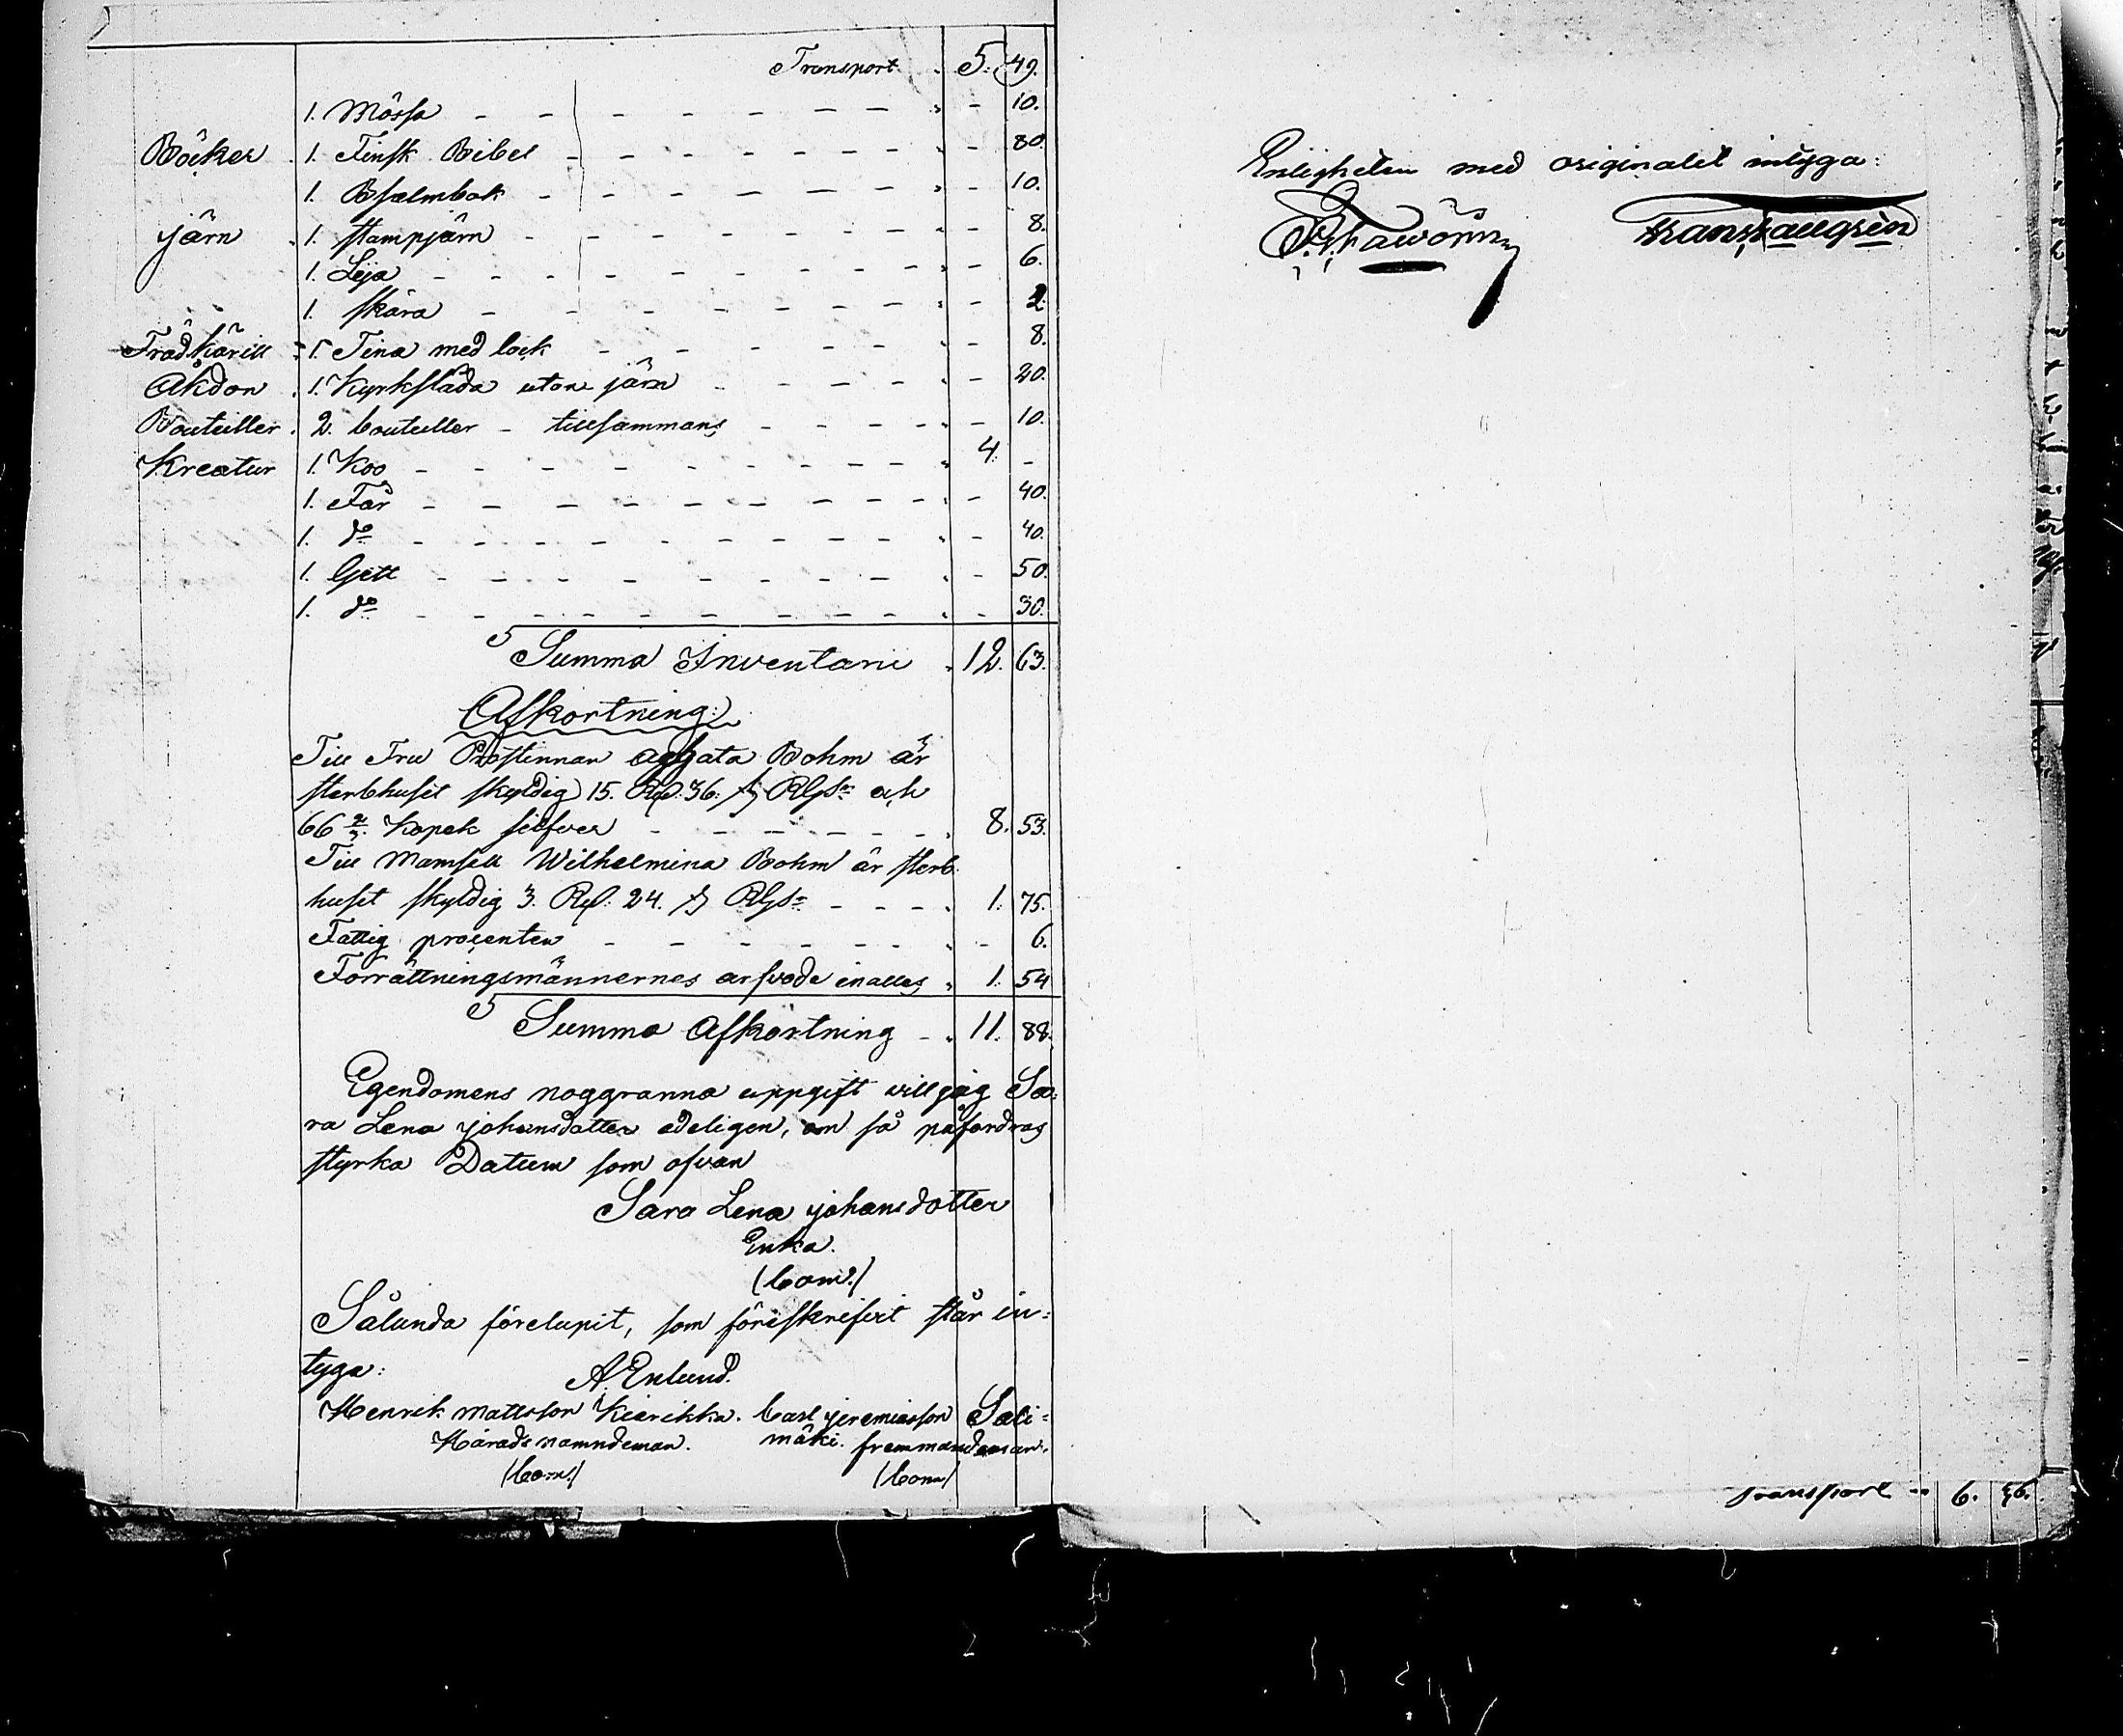 Transport 5. 49.
1. Mössa - 10.
Böcker 1. Finsk Bibel - 80
1. Psalmbok - 10.
järn 1. stampjärn - 8.
1. Lija - 6.
1. skära - 2
Trädkärill 1. Tina med lock - 8.
Åkdon 1. Kyrksläda utan järn - 20.
Bouteiller 2. bouteiller - tillsammans - 10.
Kreatur 1. Koo 4. -
1. Får - 40.
1. do - 40.
1. Gett - 50.
1. do - 30.
Summa Inventarii 12. 63.
Afkortning:
Till Fru Prostinnan Aghata Bohm är
sterbhuset skyldig 15. Rd. 36. s RGs och
66 2/3. Kopek silfver 8. 53.
Till Mamsell Wilhelmina Bohm är sterb
huset skyldig 3. Rd. 24. s RGs 1. 75.
Fattig procenten - 6.
Förrättningsmännernes arfvode inalles 1. 54
Summa Afkortning 11. 88.
Egendomens noggranna uppgift vill jag Sa=
ra Lena Johansdotter edeligen, om så påfordras
styrka Datum som ofvan
Sara Lena Johansdotter
Enka.
(bom.)
Sålunda förelupit, som föreskrifvit står in=
tyga:
A. Enlund.
Henrik Mattsson Kiarikka. Carl Jeremiasson Sali=
Härads nämndeman. mäki. fremmandeman.
(bom.) (bom)
Enligheten med originalet intyga:
Frans Kallgrén
transport 6. 36.